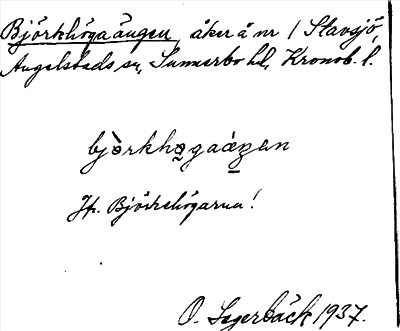 Björkhögaängen, åker å nr 1 Stavsjö,
Angelstads sn, Sunnerbo hd, Kronob. l.
bjòrkhøgaáŋen
Jfr. Björkhögarna!
O. Lagerbäck 1937.